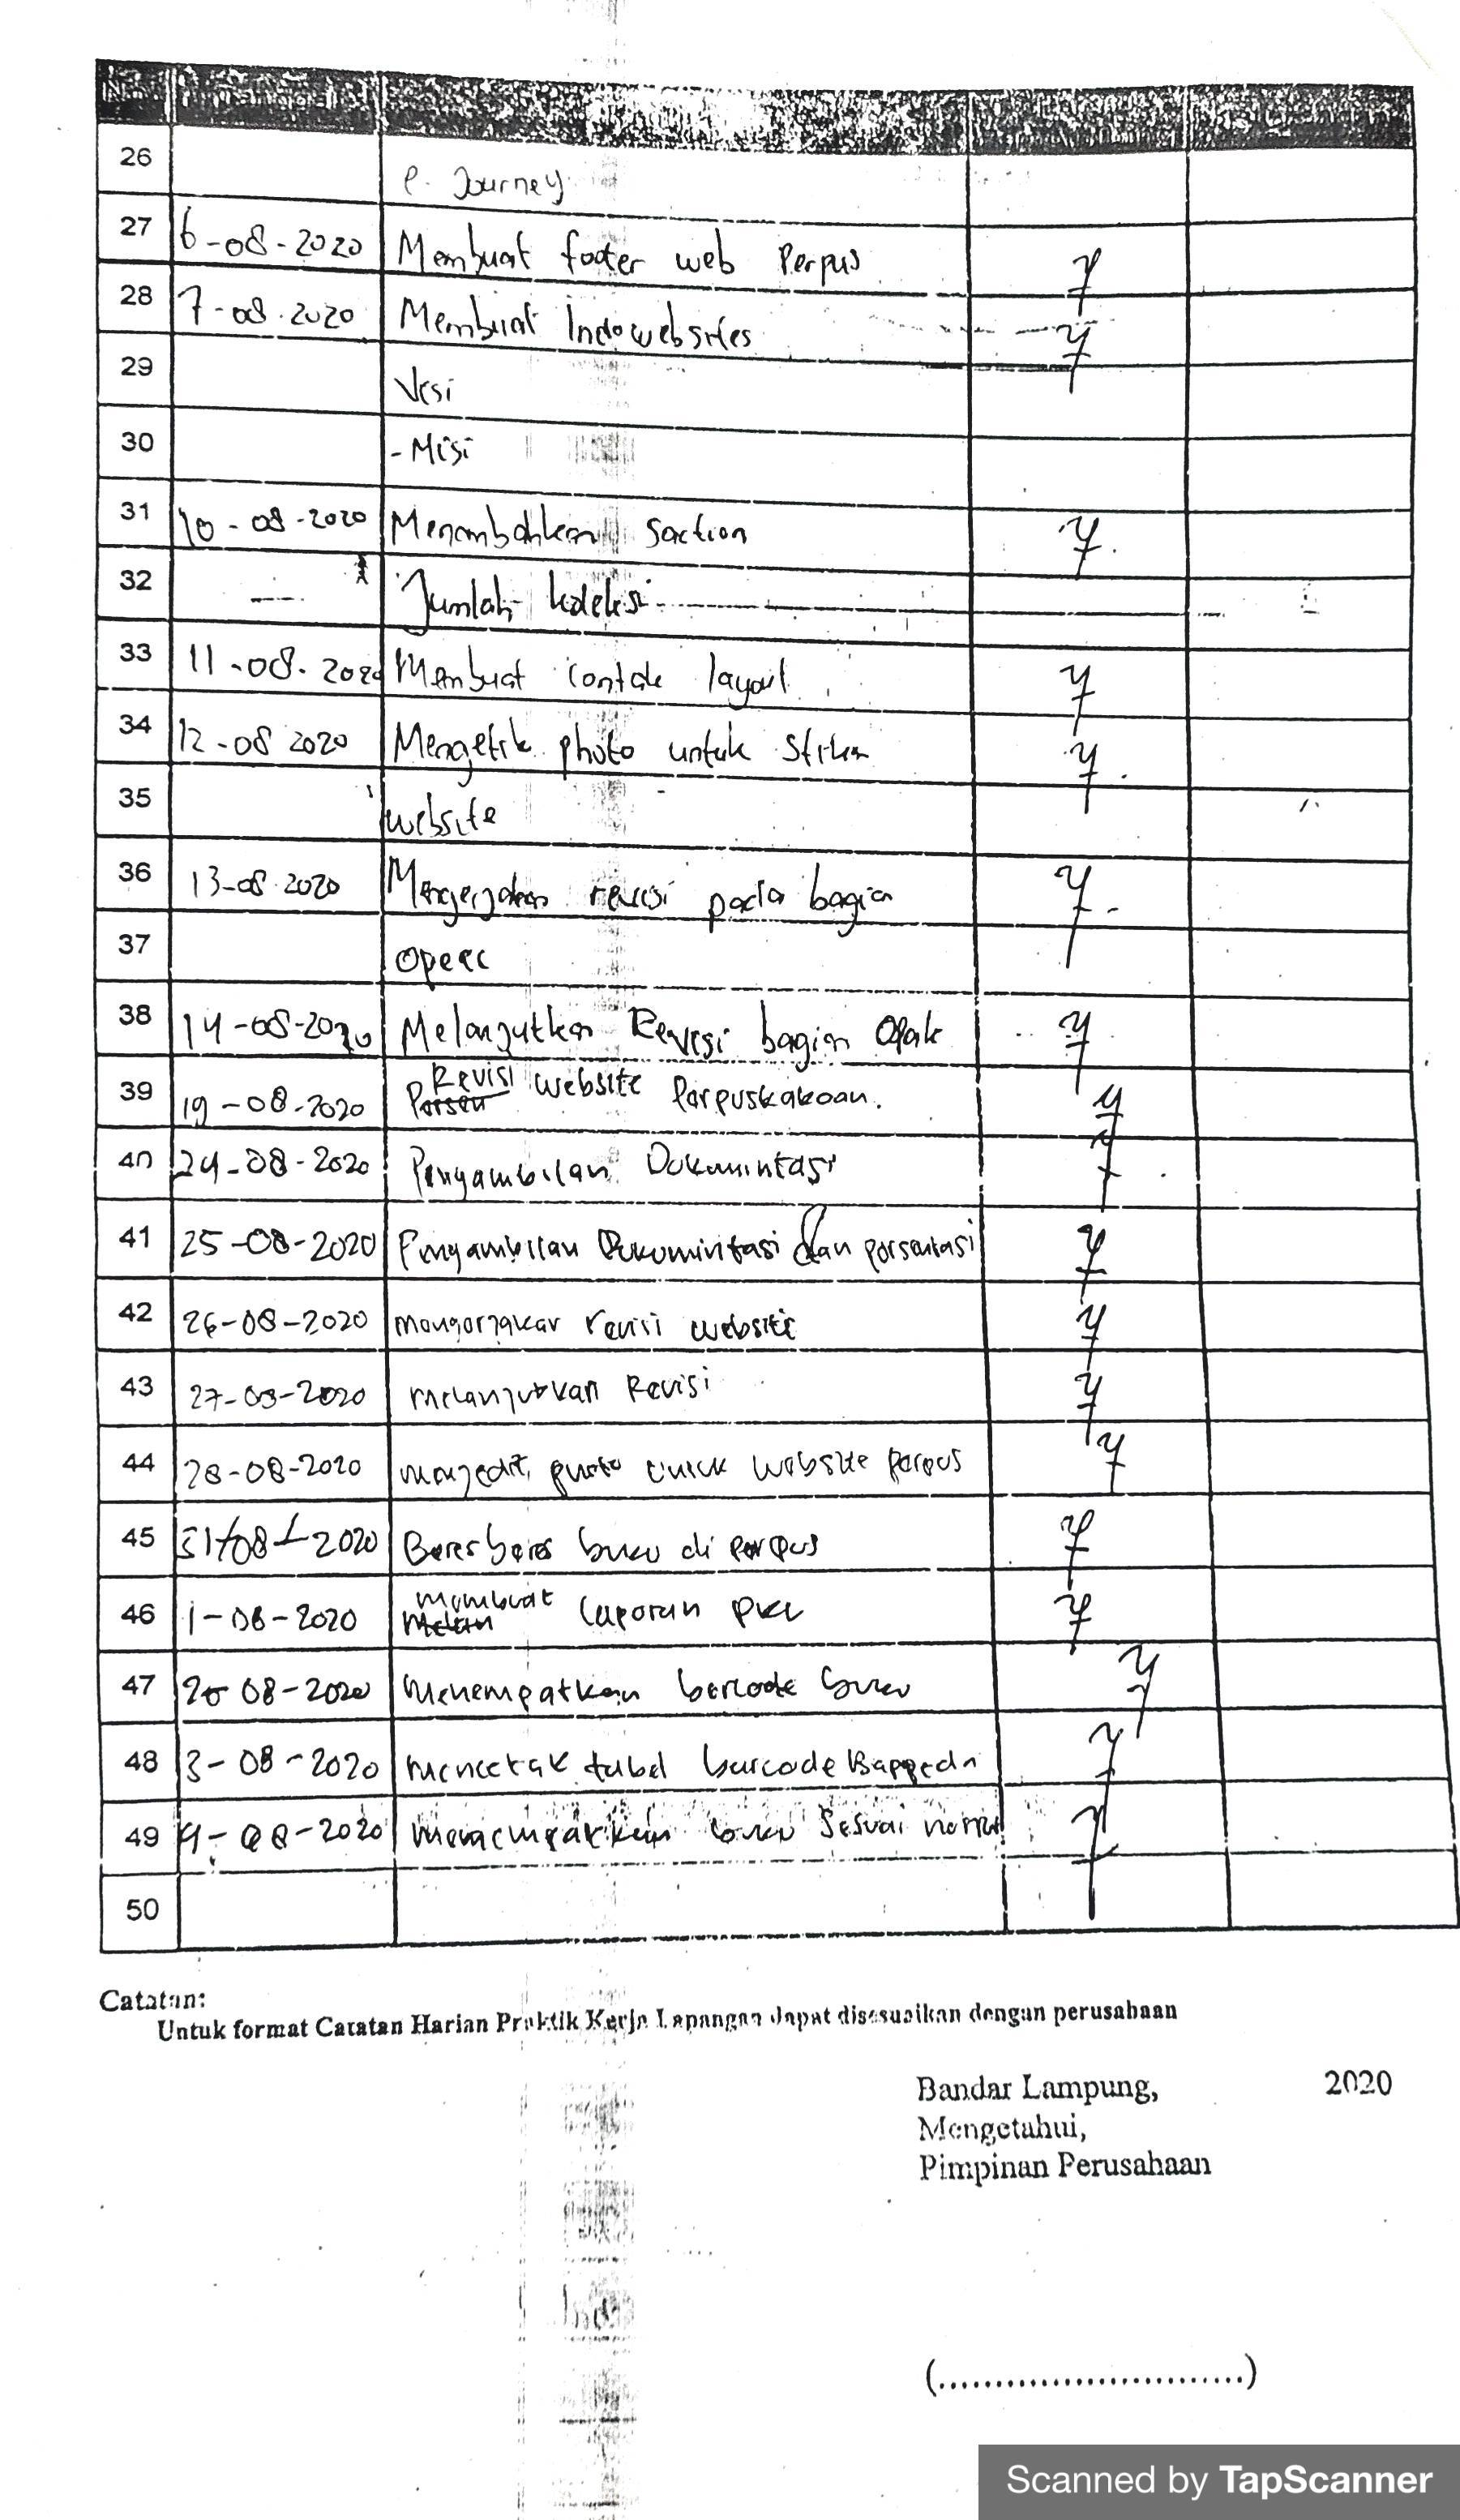 No Tanggal
26 e. Journey
27 6-08-2020 Membuat footer web Perpus
28 7-08-2020 Membuat Indowebsites
29 Visi
30 - Misi
31 10-08-2020 Menambahkan saction
32 Jumlah koleksi
33 11-08-2020 Membuat contak layout
34 12-08 2020 Mengetik photo untuk
35 website
36 13-08-2020 Mengerjakan revisi pada bagian
37 opacc
38 14-08-2020 Melanjutkan Revisi bagian Opak
39 19-08-2020 Revisi website Parpuskakaan.
40 24-08-2020 Pengambilan Dokumintasi
41 25-08-2020 Pengambilan Dokumintasi dan porsentasi
42 26-08-2020 mongorjakan revisi website
43 27-08-2020 melanjutkan Revisi
44 28-08-2020 mengedit website porpus
45 31/08-2020 Beres beres buku di perpus
46 1-08-2020 mombuat laporan PKL
47 08-2020 menempatkan barcode buku
48 3-08-2020 mencetak tabel barcode Bappeda
49 4-08-2020 menempatkan buku Sesuai nomor
50
Catatan:
Untuk format Catatan Harian Praktik Kerja Lapangan dapat disesuaikan dengan perusahaan
Bandar Lampung, 2020
Mengetahui,
Pimpinan Perusahaan
(............................)
Scanned by TapScanner